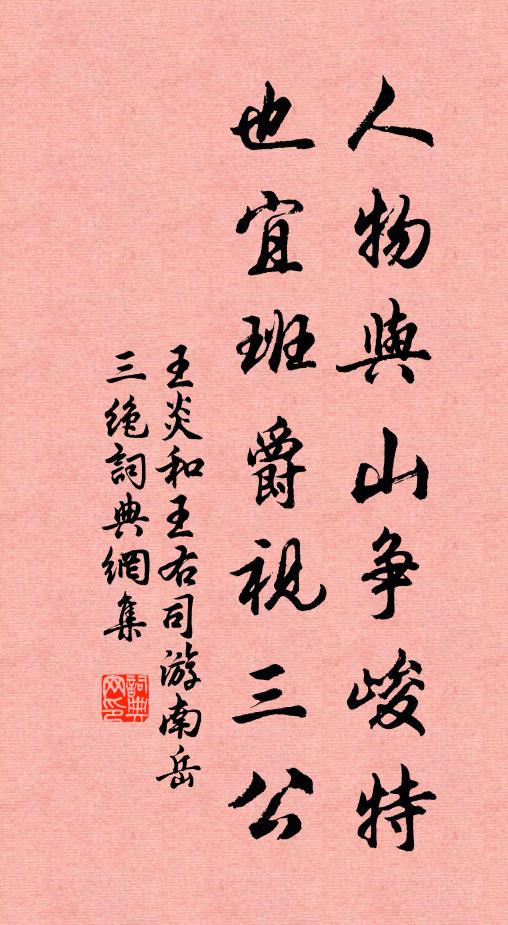 人物與山争峻特
也宜班爵視三公
王炎和王右司游南岳
三絶詞典網集
詞典网印